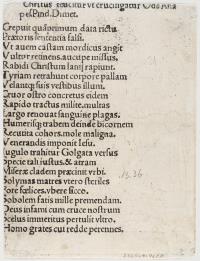 Christus
pes Pind. Dimet.
Crepuit quā primum data rictu
Prætoris sententia falsi.
Vt auem castam mordicus angit
Vultor retinens, aucupe missus,
Rabidi Christum Iani rapiunt.
Tyriam retrahunt corpore pallam
Velantque suis vestibus illum.
Cruor ostro concretus eidem
Rapido tractus milite, multas
Largo renouat sanguine plagas.
Humerisque trabem deinde bicornem
Recutita cohors, mole maligna.
Venerandis imponit Iesu.
Iugulo trahitur Golgata versus
Specie tali iustus, & atram
Miseræ cladem præcinit vrbi.
Solymas matres vtero steriles
Fore fœlices, vbere sicco.
Sobolem fatis mille premendam.
Deus infami cum cruce nostrum
Scelus immeritus pertulit vltro.
Homo grates cui redde perennes.